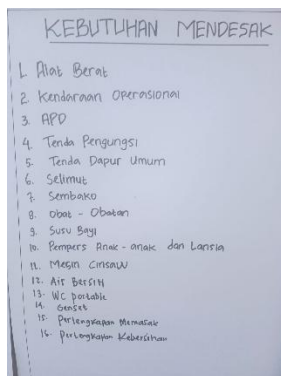 KEBUTUHAN MENDESAK
1. Alat Berat
2. Kendaraan Operasional
3. APD
4. Tenda Pengungsi
5. Tenda Dapur Umum
6. Selimut
7. Sembako
8. Obat - Obatan
9. Susu Bayi
10. Pempers Anak - anak dan Lansia
11. Mesin Cinsaw
12. Air Bersih
13. WC portable
14. Genset
15. Perlengkapan Memasak
16. Perlengkapan Kebersihan